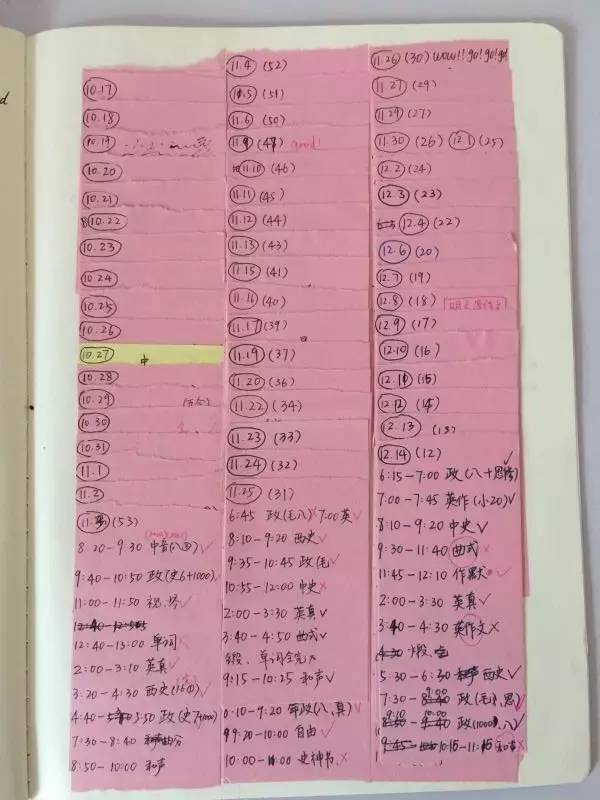 10.17
10.18
10.19
10.20
10.21
10.22
10.23
10.24
10.25
10.26
10.27 中
10.28
10.29
10.30
10.31
11.1
11.2
11.3 (53)
8:20-9:30 中音(八面) ✓
9:40-10:50 政(史6+1000) ✓
11:00-11:50 视.坊 ✓
12:40-13:00 单词 ×
2:00-3:10 英真 ✓
3:20-4:30 西史
4:40-5:50 政(史7+1000)
7:30-8:40
8:50-10:00 和声
11.4 (52)
11.5 (51)
11.6 (50)
11.9 (47) good!
11.10 (46)
11.11 (45)
11.12 (44)
11.13 (43)
11.15 (41)
11.16 (40)
11.17 (39)
11.19 (37)
11.20 (36)
11.22 (34)
11.23 (33)
11.24 (32)
11.25 (31)
6:45 政(毛八) 7:00 英 ✓
8:10-9:20 西史 ✓
9:35-10:45 政(毛 ✓
10:55-12:00 中史 ×
2:00-3:30 英真 ✓
3:40-4:50 曲式 ✓
单词全完 ×
9:15-10:25 和声 ✓
政(八、真) ✓
9:20-10:00 自由 ✓
10:00-11:00 ×
11.26 (30) wow!! go! go! go!
11.27 (29)
11.29 (27)
11.30 (26) 12.1 (25)
12.2 (24)
12.3 (23)
12.4 (22)
12.6 (20)
12.7 (19)
12.8 (18)
12.9 (17)
12.10 (16)
12.11 (15)
12.12 (14)
12.13 (13)
12.14 (12) ✓
6:15-7:00 政(八十思修)
7:00-7:45 英作(小20) ✓
8:10-9:20 中史 ✓
9:30-11:40 曲式 ×
11:45-12:10 作 ×
2:00-3:30 英真 ✓
3:40-4:30 英作文 ×
5:30-6:30 西史 ✓
7:30-9:00 政(毛、思) ✓
9:10-10:10 政(1000、八) ✓
10:15-11:15 和声 ×